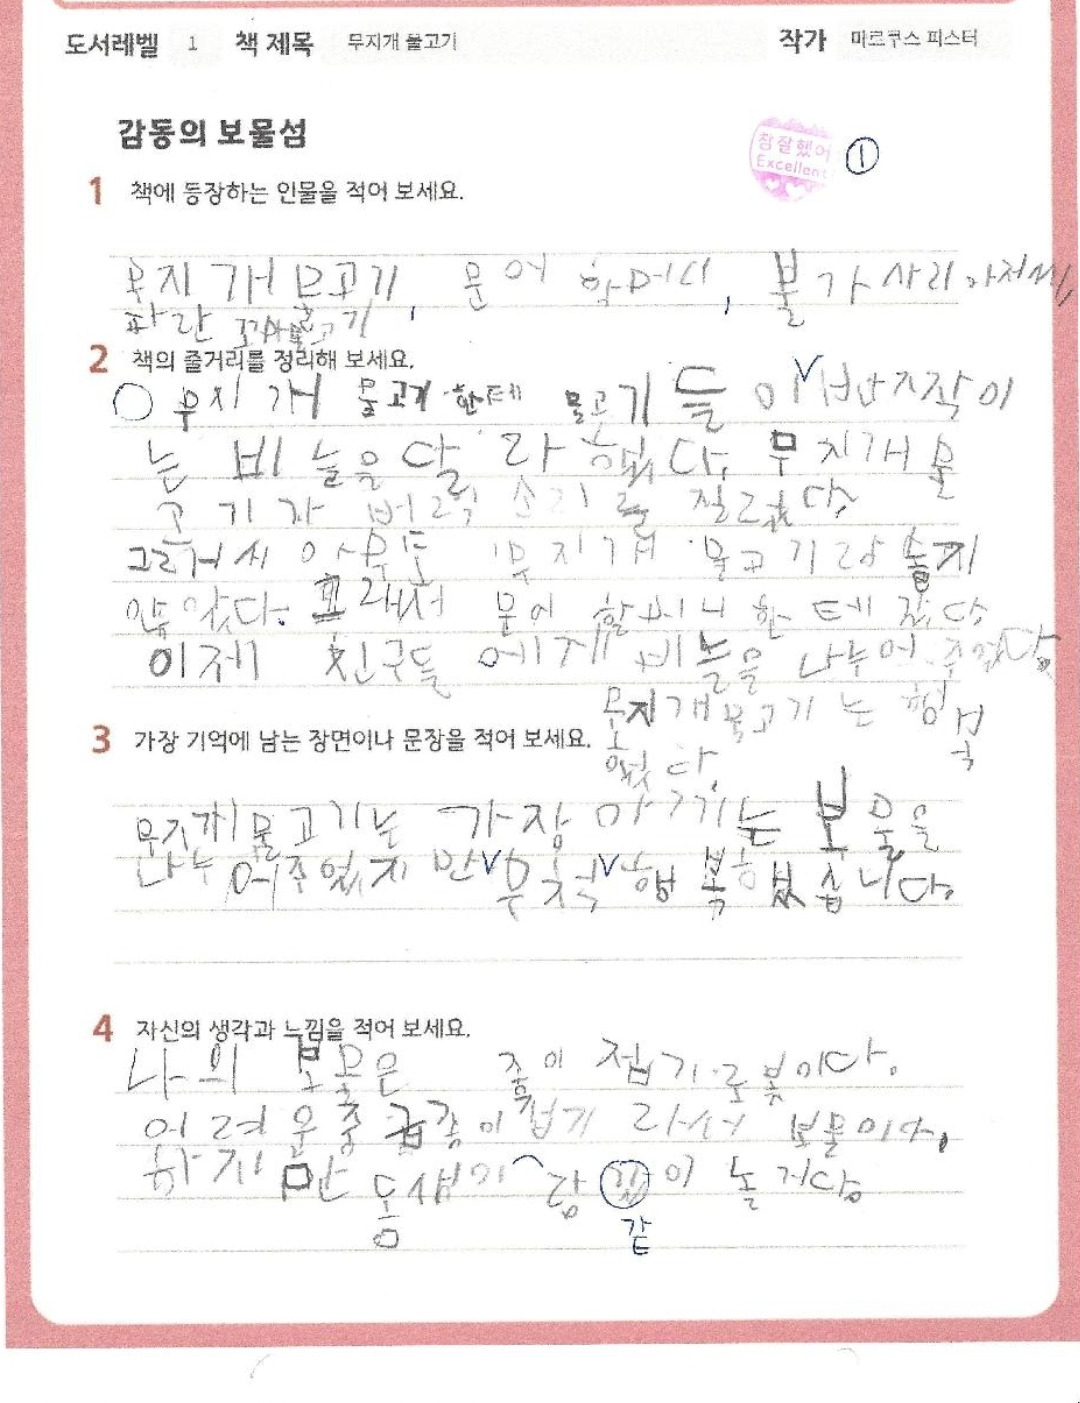 도서레벨 1 책 제목 무지개 물고기 작가 마르쿠스 피스터
감동의 보물섬
참 잘했어
Excellent
①
1 책에 등장하는 인물을 적어 보세요.
무지개 물고기, 문어 할머니, 불가사리 아저씨,
파란 꼬마 물고기
2 책의 줄거리를 정리해 보세요.
무지개 물고기한테 물고기들이 반짝이
는 비늘을 달라 했다. 무지개 물
고기가 버럭 소리를 질렀다.
그러서 아무도 무지개 물고기랑 놀지
않았다. 그래서 문어 할머니한테 갔다.
이제 친구들에게 비늘을 나누어 주었다.
무지개 물고기는 행복
했다.
3 가장 기억에 남는 장면이나 문장을 적어 보세요.
무지개 물고기는 가장 아끼는 보물을
나누어 주었지만 무척 행복했습니다.
4 자신의 생각과 느낌을 적어 보세요.
나의 보물은 종이접기 로봇이다.
어려운 중급 종이접기라서 보물이다.
하지만 동생이랑 같이 놀거다.
같